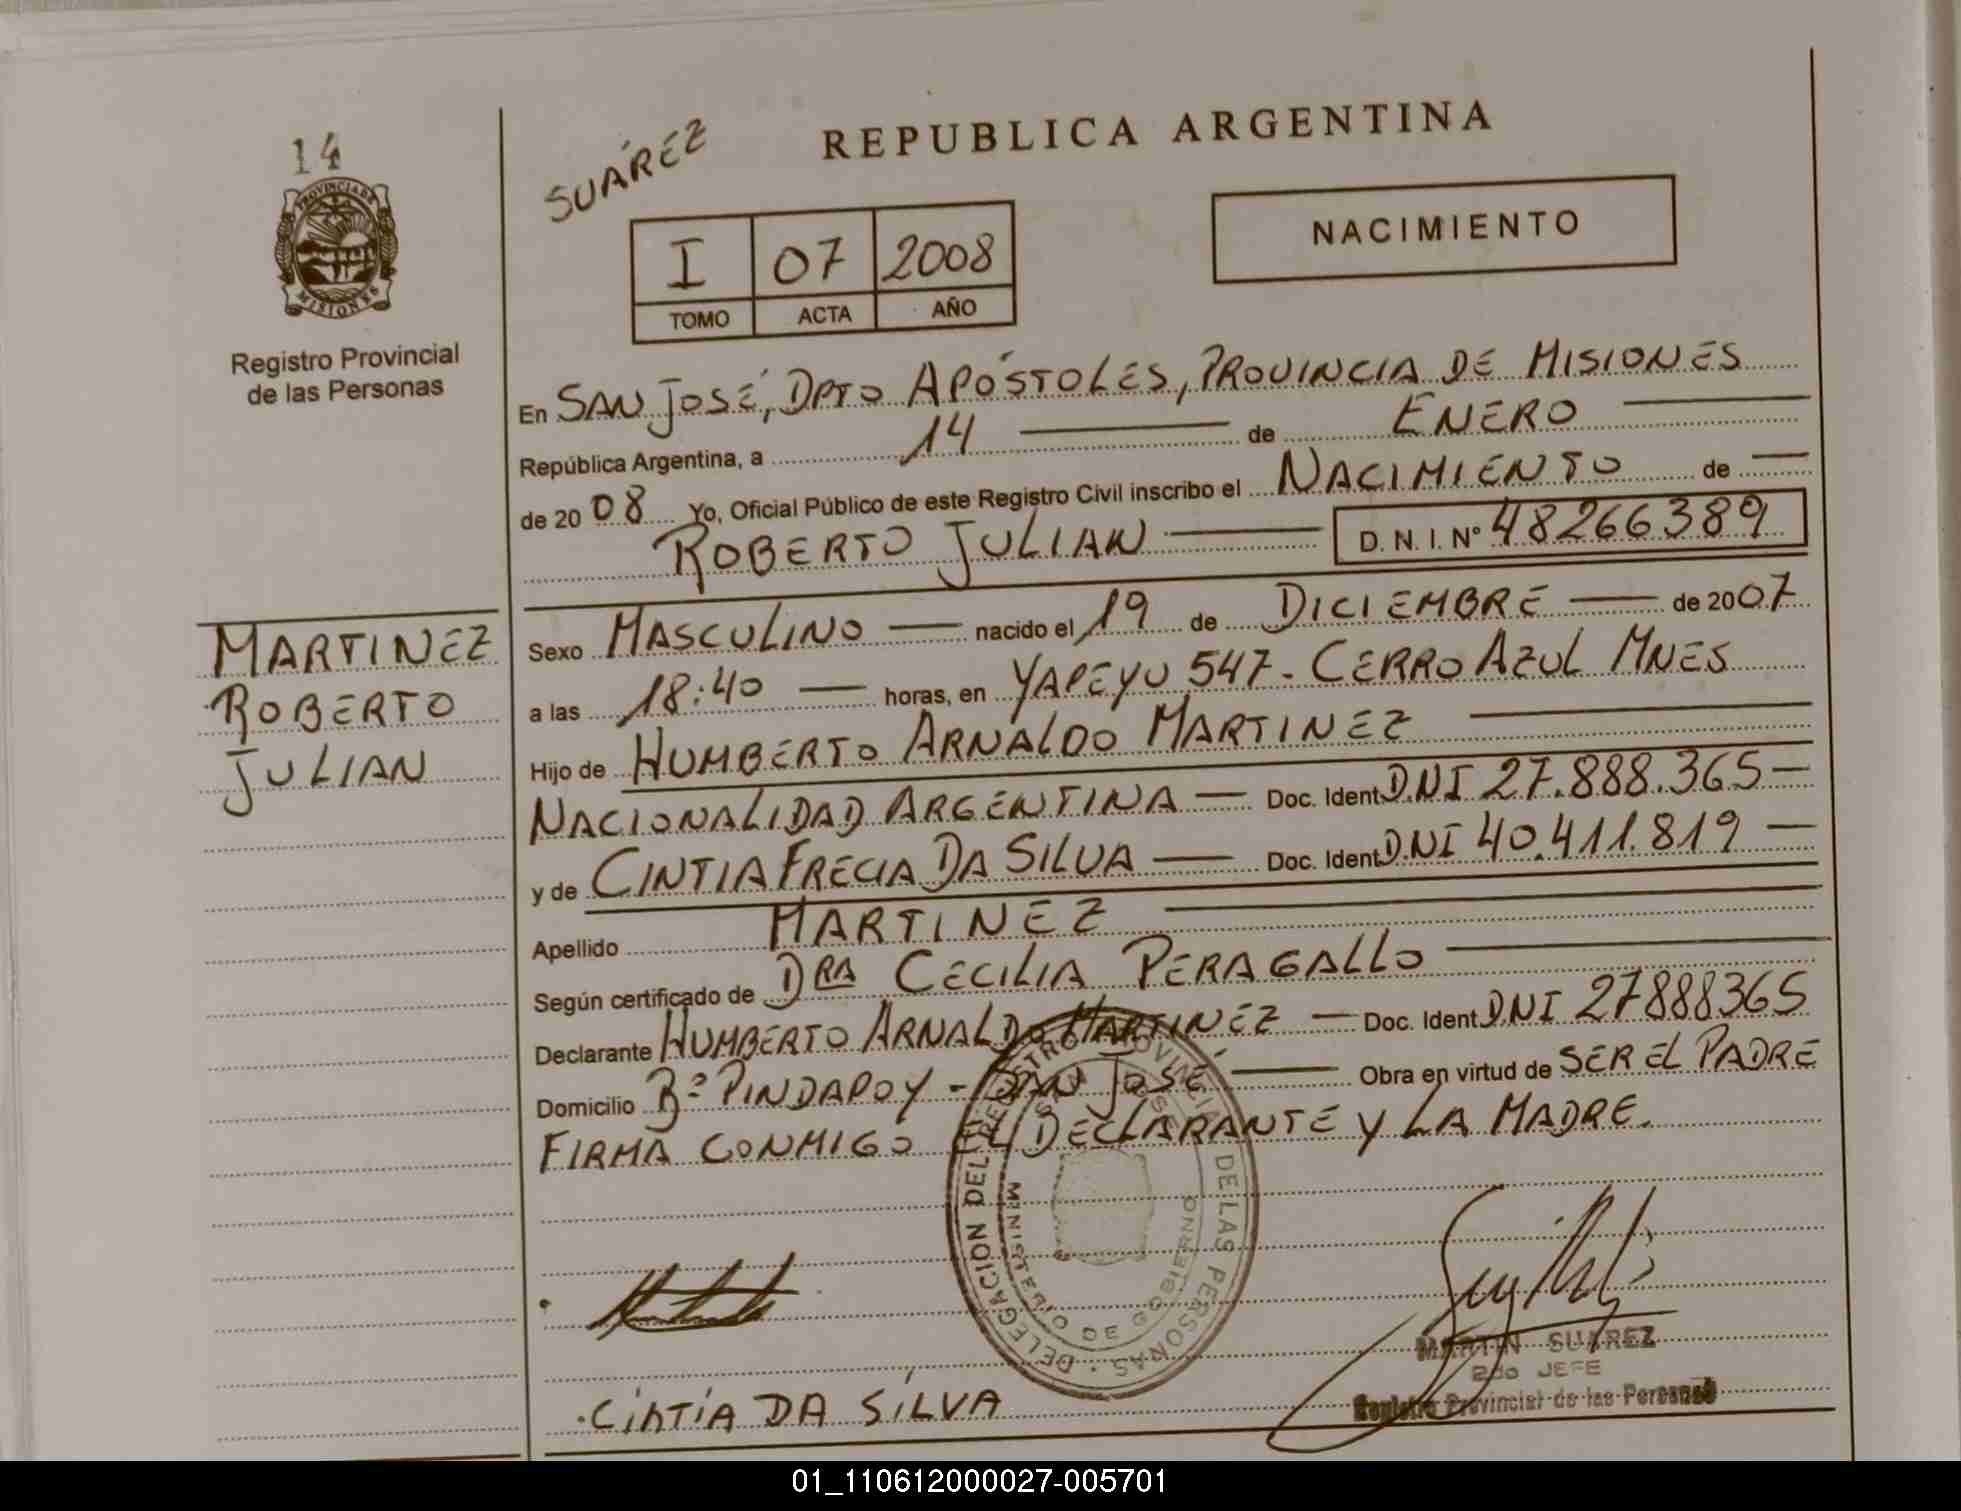 14
PROVINCIA DE
MISIONES
Registro Provincial
de las Personas
SUÁREZ
REPUBLICA ARGENTINA
I 07 2008
TOMO ACTA AÑO
NACIMIENTO
En SAN JOSÉ, DPTO APÓSTOLES, PROVINCIA DE MISIONES
República Argentina, a 14 de ENERO
de 2008 Yo, Oficial Público de este Registro Civil inscribo el NACIMIENTO de
ROBERTO JULIAN D. N. I. Nº 48266389
MARTINEZ
ROBERTO
JULIAN
Sexo MASCULINO nacido el 19 de DICIEMBRE de 2007
a las 18:40 horas, en YAPEYU 547 - CERRO AZUL MNES
Hijo de HUMBERTO ARNALDO MARTINEZ
NACIONALIDAD ARGENTINA Doc. Ident D.NI 27.888.365
y de CINTIA FRECIA DA SILVA Doc. Ident D.NI 40.411.819
Apellido MARTINEZ
Según certificado de DRA CECILIA PERAGALLO
Declarante HUMBERTO ARNALDO MARTINEZ Doc. Ident DNI 27888365
Domicilio Bº PINDAPOY - SAN JOSÉ Obra en virtud de SER EL PADRE
FIRMA CONMIGO EL DECLARANTE Y LA MADRE.
DELEGACION DEL REGISTRO PROVINCIAL DE LAS PERSONAS
SAN JOSE
MINISTERIO DE GOBIERNO
MARTIN SUAREZ
2do JEFE
Registro Provincial de las Personas
CINTIA DA SILVA
01_110612000027-005701